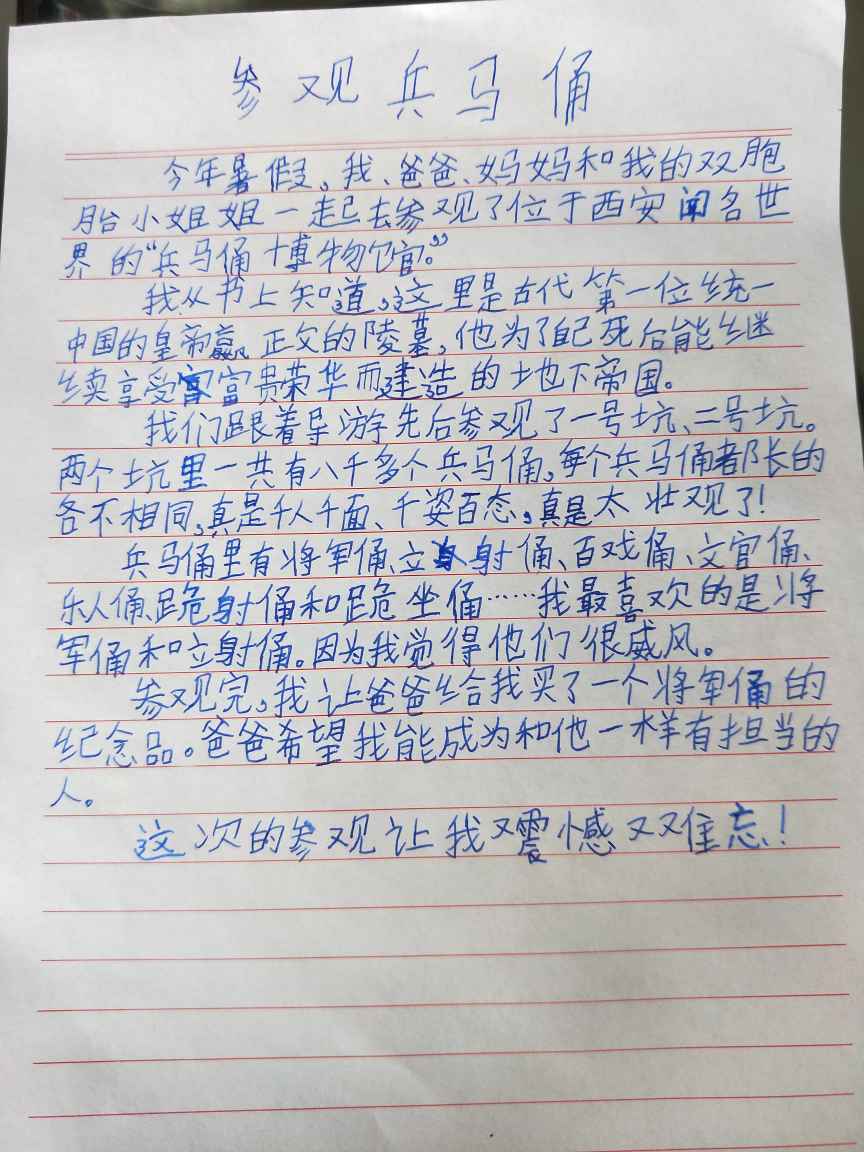 参观兵马俑
今年暑假,我、爸爸、妈妈和我的双胞
胎小姐姐一起去参观了位于西安闻名世
界的“兵马俑博物馆。”
我从书上知道,这里是古代第一位统一
中国的皇帝嬴正父的陵墓,他为了自己死后能继
续享受富贵荣华而建造的地下帝国。
我们跟着导游先后参观了一号坑、二号坑。
两个坑里一共有八千多个兵马俑,每个兵马俑都长的
各不相同,真是千人千面、千姿百态,真是太壮观了!
兵马俑里有将军俑、立射俑、百戏俑、文官俑、
乐人俑、跪射俑和跪坐俑……我最喜欢的是将
军俑和立射俑。因为我觉得他们很威风。
参观完,我让爸爸给我买了一个将军俑的
纪念品。爸爸希望我能成为和他一样有担当的
人。
这次的参观让我又震憾又难忘!